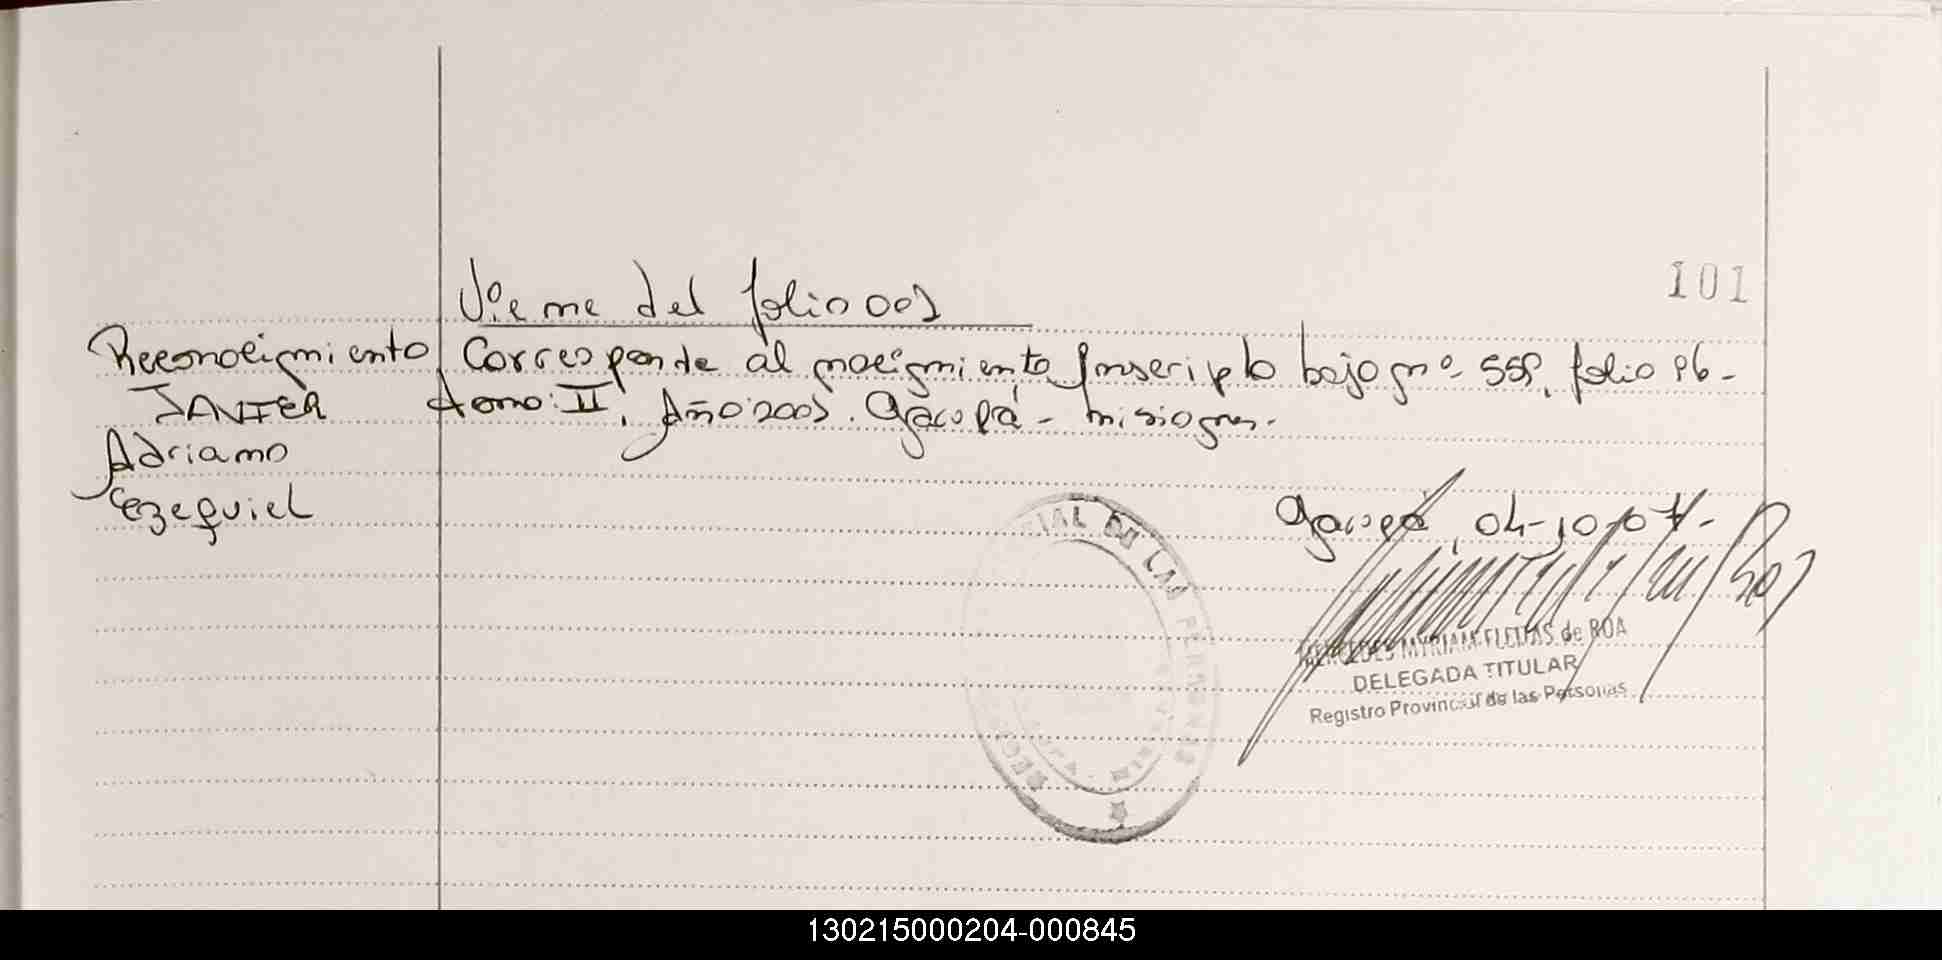 101
Viene del folio 001
Reconocimiento Corresponde al nacimiento Inscripto bajo nº folio 96-
JAVIER tomo: II, Año: 2001. Garupá - Misiones.-
Adriano
Ezequiel
Garupá, 04-10-07-
MERCEDES MYRIAM FLEITAS de ROA
DELEGADA TITULAR
Registro Provincial de las Personas
REGISTRO PROVINCIAL DE LAS PERSONAS
130215000204-000845